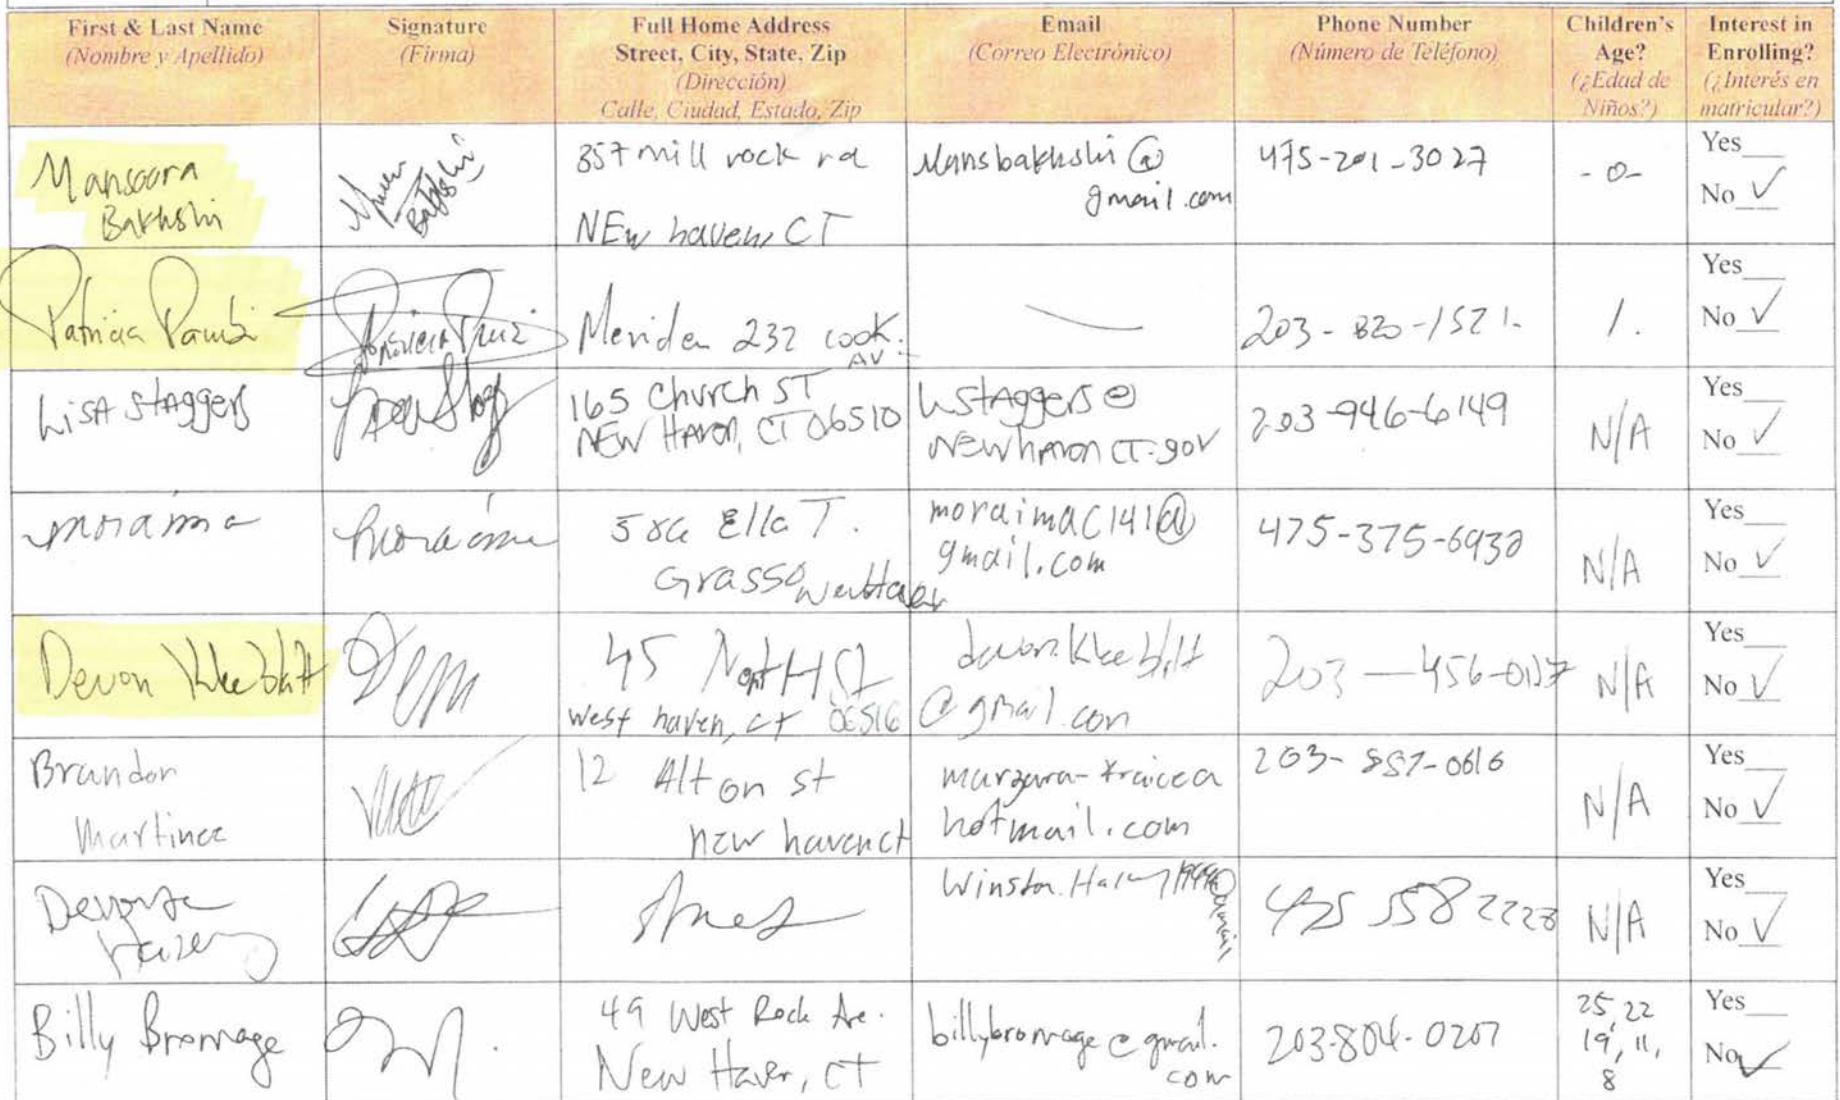 First & Last Name
(Nombre y Apellido)
Signature
(Firma)
Full Home Address
Street, City, State, Zip
(Dirección)
Calle, Ciudad, Estado, Zip
Email
(Correo Electrónico)
Phone Number
(Número de Teléfono)
Children's
Age?
(¿Edad de
Niños?)
Interest in
Enrolling?
(¿Interés en
matricular?)
Mansoora
Bakhshi
Bakhshi
357 mill rock rd
NEw haven, CT
Mansbakhshi@
gmail.com
475-201-3027
-0-
Yes
No ✓
Patricia
Meriden 232 cook.
AV
203-820-1521.
1.
Yes
No ✓
LisA STAggers
165 Church ST
NEW HAVEN, CT 06510
LSTAggers@
NEWhavenCT.gov
203-946-6149
N/A
Yes
No ✓
moraima
moraima
Ella T.
Grasso
moraimac141@
gmail.com
475-375-6930
N/A
Yes
No ✓
Devon
45 North St
West haven, ct 06516
@gmail.com
203-456-
N/A
Yes
No ✓
Brandon
Martinez
12 Alton st
new haven ct
hotmail.com
203-887-0616
N/A
Yes
No ✓
Winston.
475 558 2228
N/A
Yes
No ✓
Billy Bromage
49 West Rock Ave.
New Haven, CT
billybromage@gmail.
com
203-804-0207
25, 22
19, 11,
8
Yes
No ✓